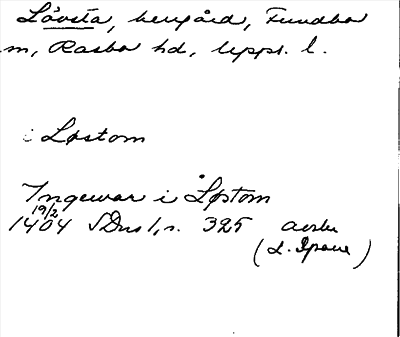 Lövsta, herrgård, Funbo
sn, Rasbo hd, Uppl. l.
i Løstom
Ingewar i Løstom
19/2
1404 SDns 1, s. 325